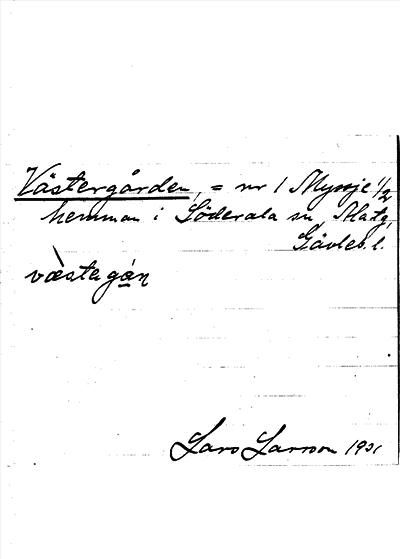 Västergården, = nr 1 Myssje 1/2
hemman i Söderala sn, Alatg,
Gävleb. l.
væ̀stegán
Lars Larsson 1931